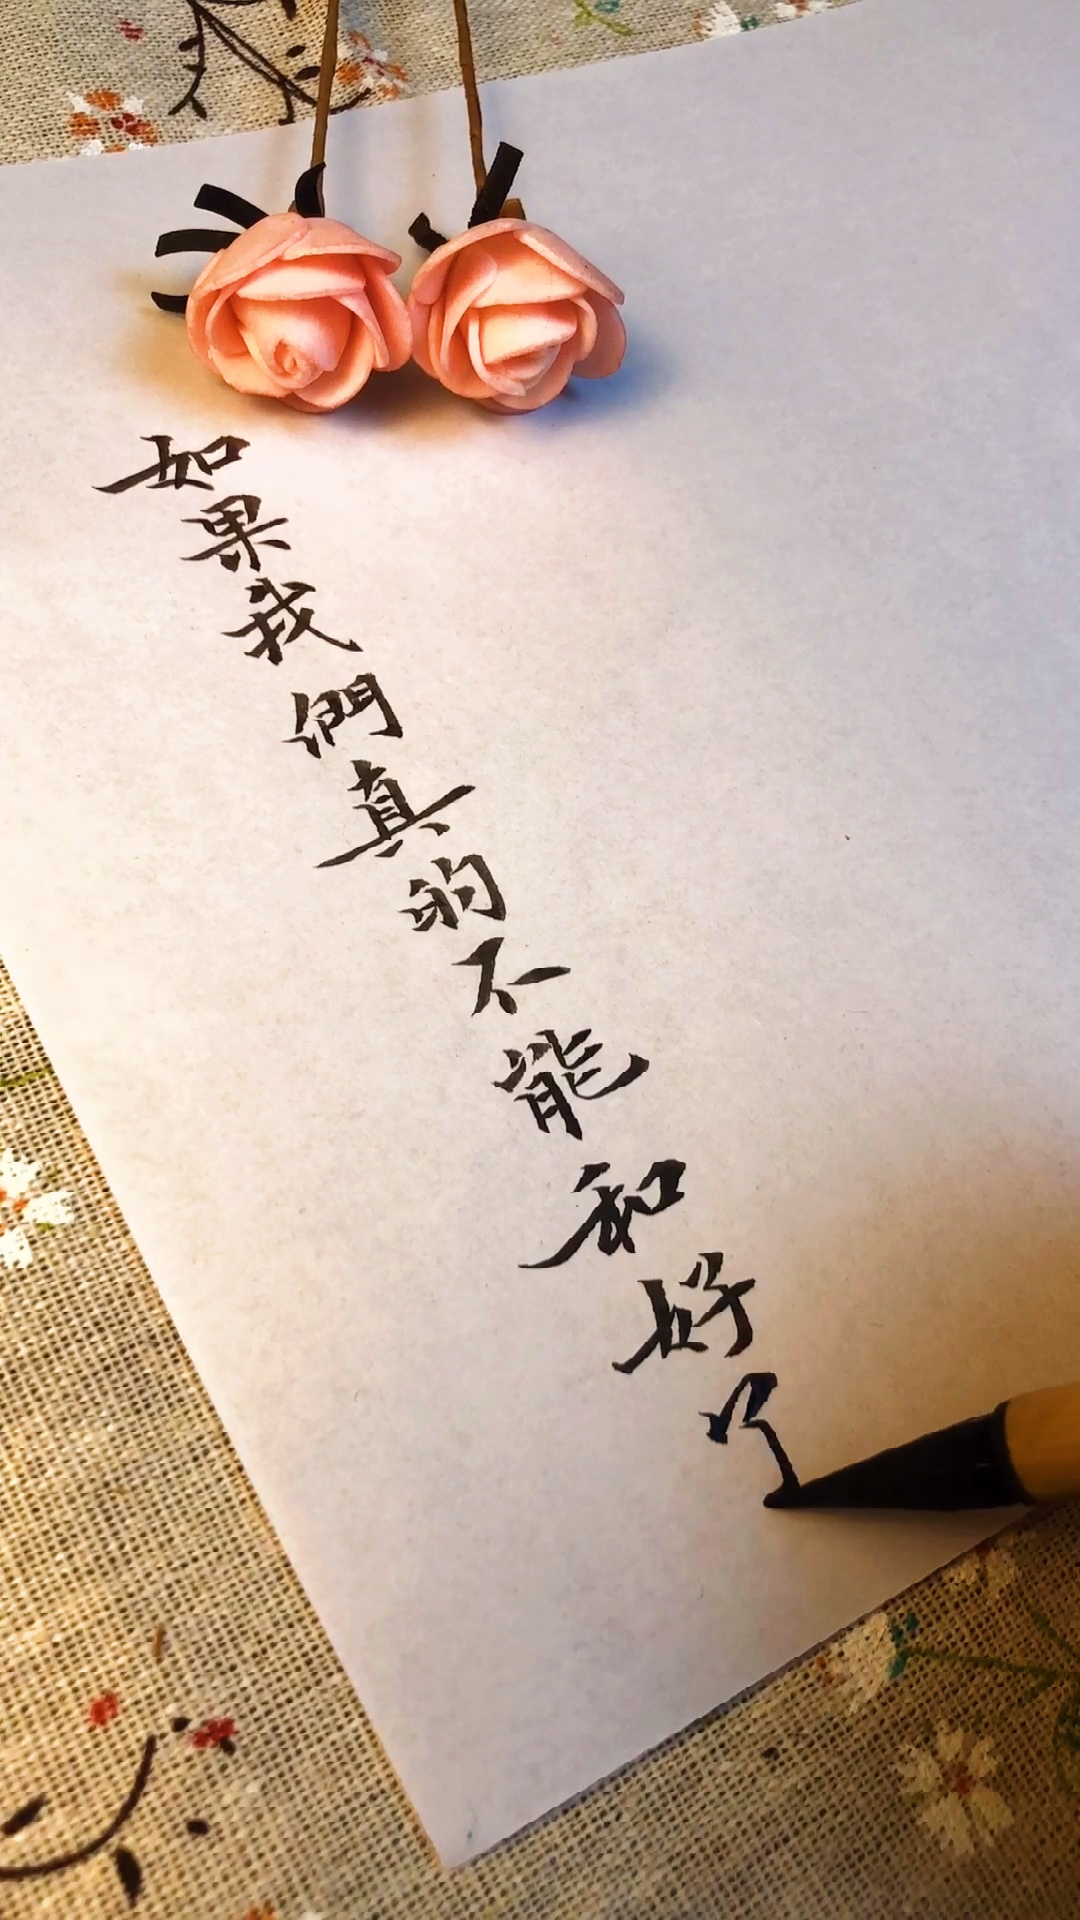 如果我們真的不能和好了